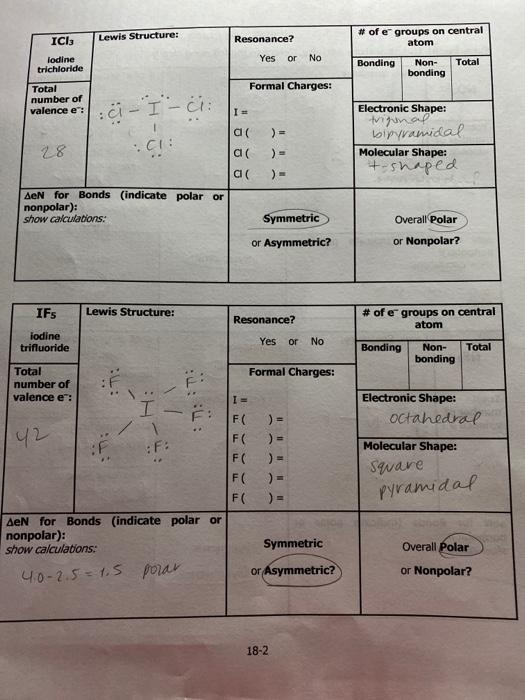 ICl₃
Iodine
trichloride
Total
number of
valence e⁻:
28
Lewis Structure:
:Cl - I - Cl:
:Cl:
Resonance?
Yes or No
Formal Charges:
I =
Cl ( ) =
Cl ( ) =
Cl ( ) =
# of e⁻ groups on central
atom
Bonding Non-bonding Total
Electronic Shape:
trigonal
bipyramidal
Molecular Shape:
t-shaped
ΔeN for Bonds (indicate polar or
nonpolar):
show calculations:
Symmetric
or Asymmetric?
Overall Polar
or Nonpolar?
IF₅
iodine
trifluoride
Total
number of
valence e⁻:
42
Lewis Structure:
:F F:
I - F:
:F :F:
Resonance?
Yes or No
Formal Charges:
I =
F ( ) =
F ( ) =
F ( ) =
F ( ) =
F ( ) =
# of e⁻ groups on central
atom
Bonding Non-bonding Total
Electronic Shape:
octahedral
Molecular Shape:
square
pyramidal
ΔeN for Bonds (indicate polar or
nonpolar):
show calculations:
4.0-2.5 = 1.5 polar
Symmetric
or Asymmetric?
Overall Polar
or Nonpolar?
18-2